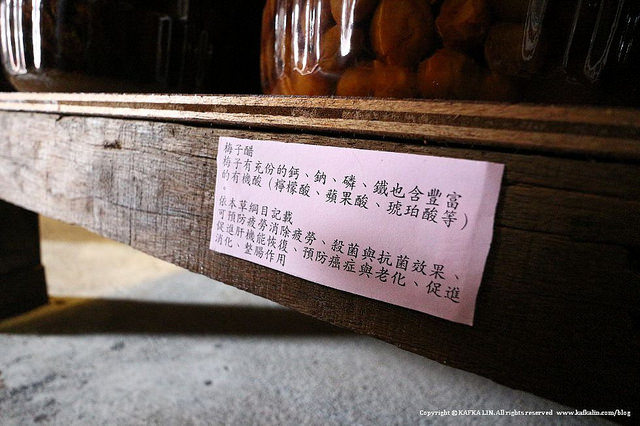 梅子醋
梅子有充份的鈣、鈉、磷、鐵也含豐富
的有機酸（檸檬酸、蘋果酸、琥珀酸等）
。
依本草綱目記載
可預防疲勞消除疲勞、殺菌與抗菌效果、
促進肝機能恢復、預防癌症與老化、促進
消化、整腸作用
Copyright @ KAFKA LIN. All rights reserved www.kafkalin.com/blog